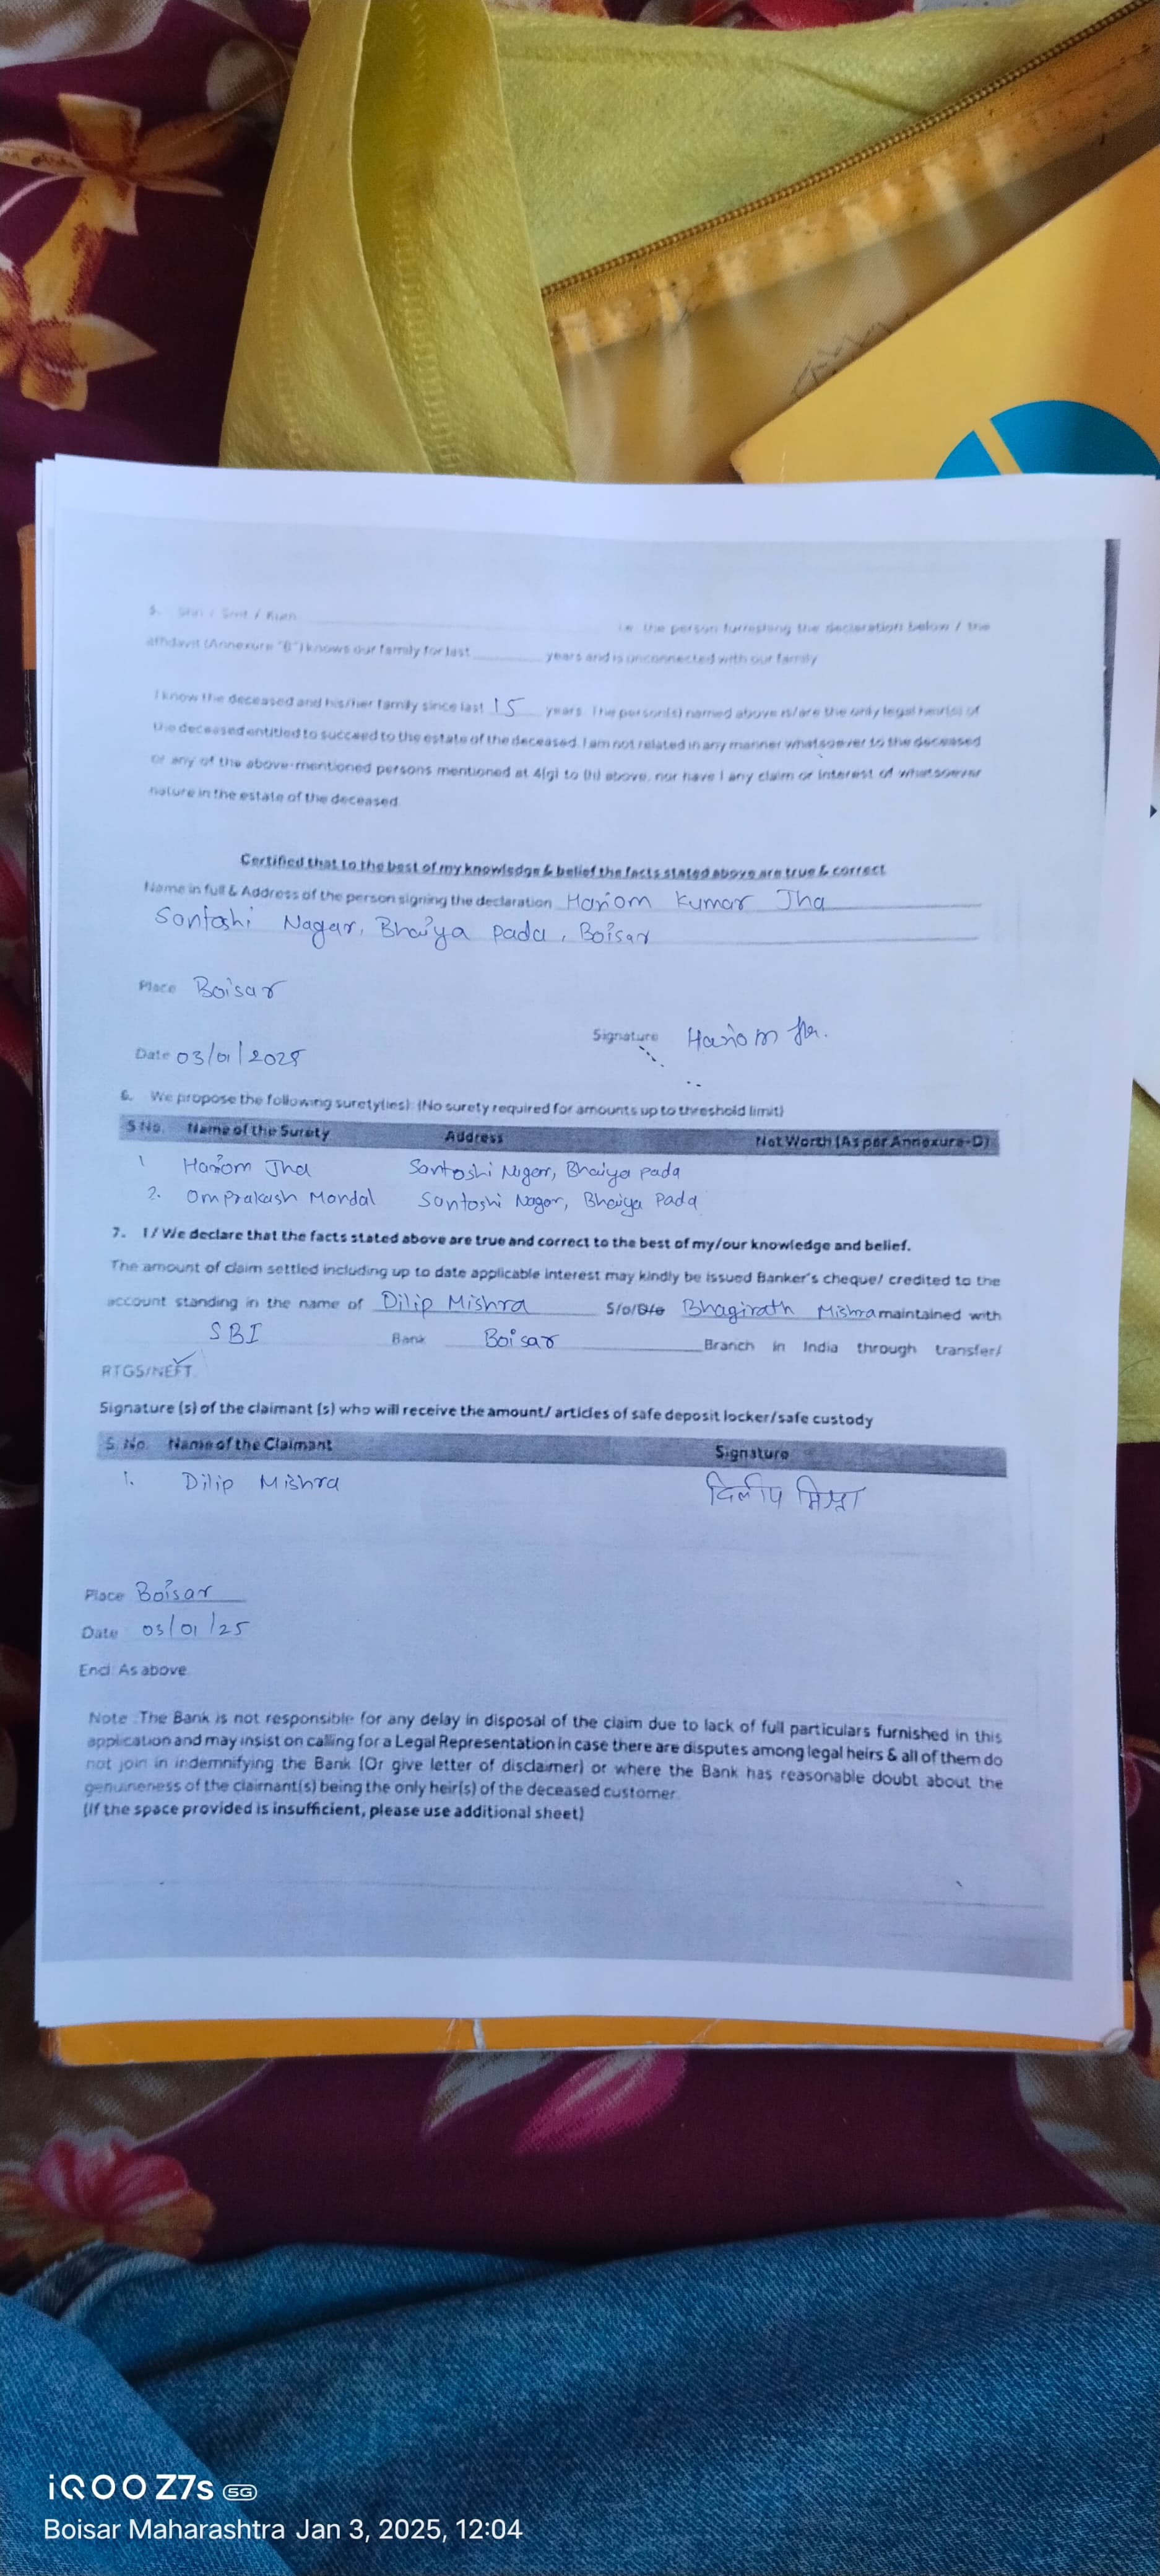 5. Shri / Smt / Kum i.e. the person furnishing the declaration below / the
affidavit (Annexure "B") knows our family for last years and is unconnected with our family
I know the deceased and his/her family since last 15 years. The person(s) named above is/are the only legal heir(s) of
the deceased entitled to succeed to the estate of the deceased. I am not related in any manner whatsoever to the deceased
or any of the above-mentioned persons mentioned at 4(g) to (h) above, nor have I any claim or interest of whatsoever
nature in the estate of the deceased.
Certified that to the best of my knowledge & belief the facts stated above are true & correct
Name in full & Address of the person signing the declaration Hariom Kumar Jha
Santoshi Nagar, Bhaiya Pada, Boisar
Place Boisar
Signature Hariom Jha.
Date 03/01/2025
6. We propose the following surety(ies): (No surety required for amounts up to threshold limit)
S No. Name of the Surety Address Net Worth (As per Annexure-D)
1 Hariom Jha Santoshi Nagar, Bhaiya Pada
2. Omprakash Mondal Santoshi Nagar, Bhaiya Pada
7. I / We declare that the facts stated above are true and correct to the best of my/our knowledge and belief.
The amount of claim settled including up to date applicable interest may kindly be issued Banker's cheque/ credited to the
account standing in the name of Dilip Mishra S/o/D/o Bhagirath Mishra maintained with
SBI Bank Boisar Branch in India through transfer/
RTGS/NEFT.
Signature (s) of the claimant (s) who will receive the amount/ articles of safe deposit locker/safe custody
S. No. Name of the Claimant Signature
1. Dilip Mishra दिलीप मिश्रा
Place Boisar
Date 03/01/25
Encl: As above.
Note :The Bank is not responsible for any delay in disposal of the claim due to lack of full particulars furnished in this
application and may insist on calling for a Legal Representation in case there are disputes among legal heirs & all of them do
not join in indemnifying the Bank (Or give letter of disclaimer) or where the Bank has reasonable doubt about the
genuineness of the claimant(s) being the only heir(s) of the deceased customer.
(If the space provided is insufficient, please use additional sheet)
iQOO Z7s 5G
Boisar Maharashtra Jan 3, 2025, 12:04